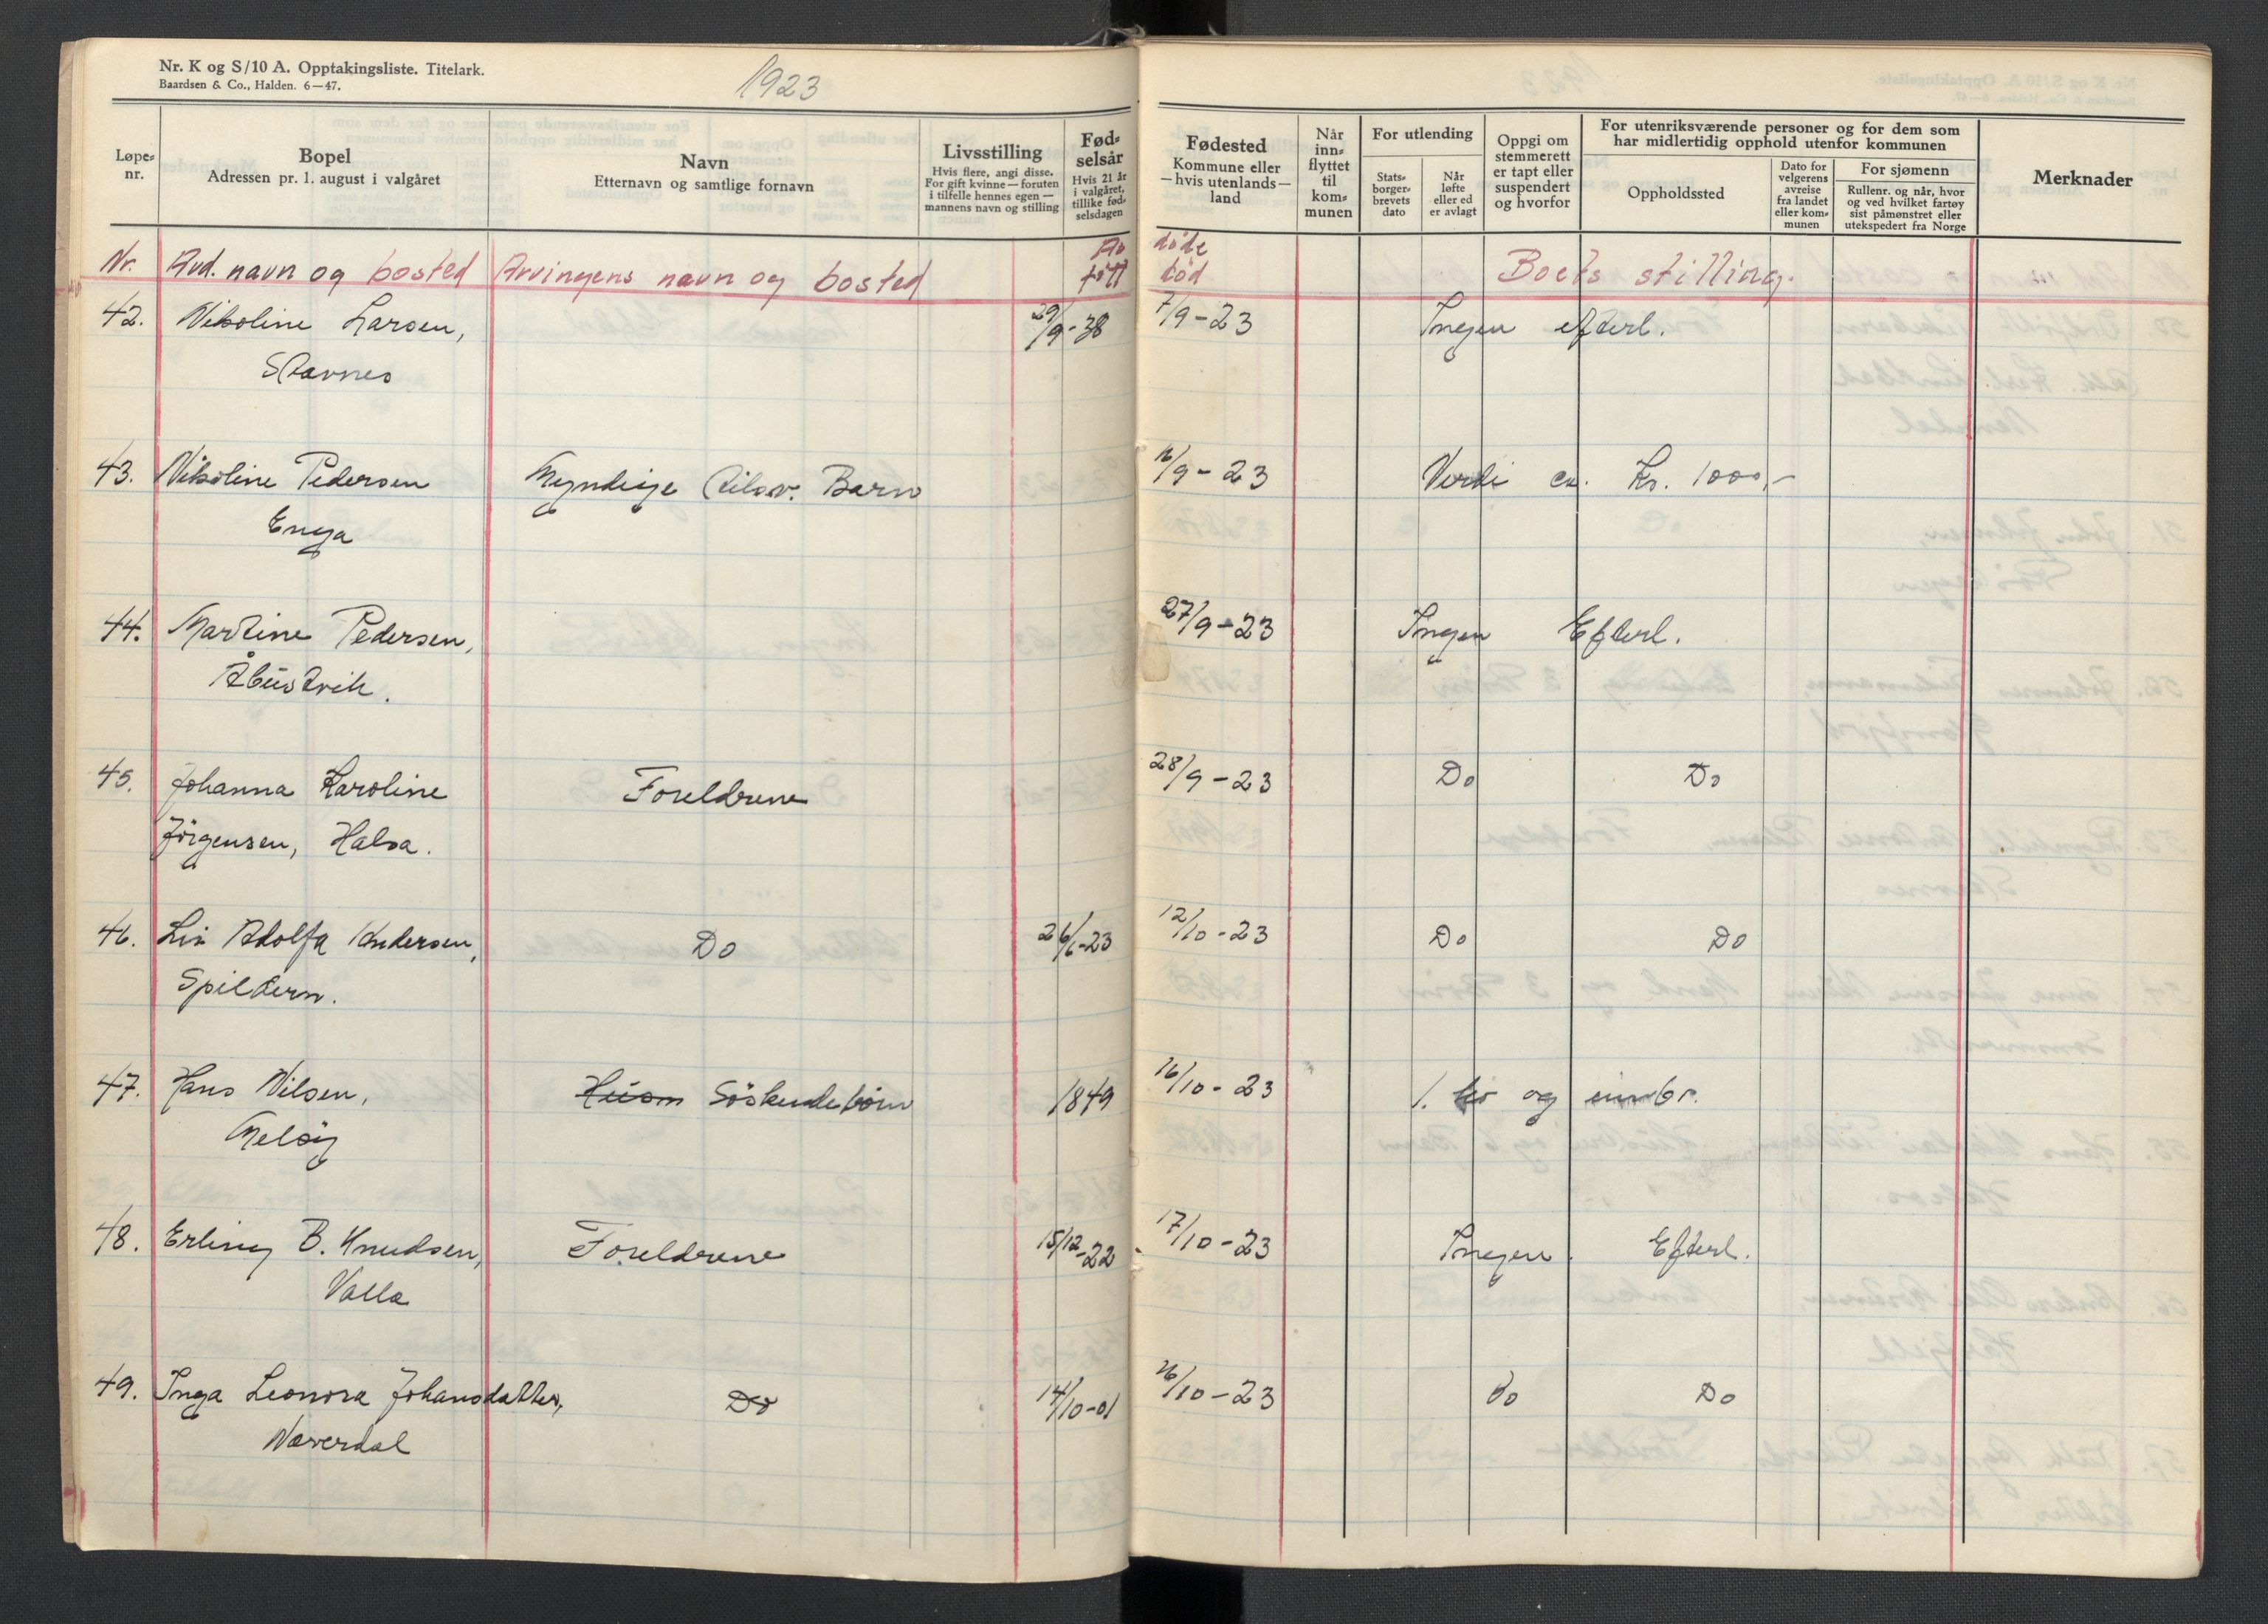 Nr. K og S/10 A. Opptakingsliste. Titelark.
Baardsen & Co., Halden. 6—47.
1923
Løpe-nr.
Bopel
Adressen pr. 1. august i valgåret
Navn
Etternavn og samtlige fornavn
Livsstilling
Hvis flere, angi disse.
For gift kvinne — foruten
i tilfelle hennes egen —
mannens navn og stilling
Fød-
selsår
Hvis 21 år
i valgåret,
tillike fød-
selsdagen
Fødested
Kommune eller
— hvis utenlands —
land
Når
inn-
flyttet
til
kom-
munen
For utlending
Stats-
borger-
brevets
dato
Når
løfte
eller ed
er avlagt
Oppgi om
stemmerett
er tapt eller
suspendert
og hvorfor
For utenriksværende personer og for dem som
har midlertidig opphold utenfor kommunen
Oppholdssted
Dato for
velgerens
avreise
fra landet
eller kom-
munen
For sjømenn
Rullenr. og når, hvor
og ved hvilket fartøy
sist påmønstret eller
utekspedert fra Norge
Merknader
Nr. Avd. navn og bosted Arvingens navn og bosted født død Boets stilling.
42. Nikoline Larsen, 29/9-38 7/9-23 Ingen efterl.
Stavnes
43. Nikoline Pedersen Myndige Barn 16/9-23 Verdi ca. Kr. 1000,-
Enga
44. Martine Pedersen, 27/9-23 Ingen Efterl.
45. Johanna Karoline Foreldrene 28/9-23 Do Do
Jörgensen, Halsa.
46. Liv Adolfa Andersen, Do 26/6-23 12/10-23 Do Do
Spildern.
47. Hans Nilsen, Husm Söskendebörn 1849 16/10-23 1. og
Melöy
48. Erling B. Knudsen, Foreldrene 15/12-22 17/10-23 Ingen Efterl.
Valla
49. Inga Leonora Johansdatter, Do 14/10-01 26/10-23 Do Do
Næverdal